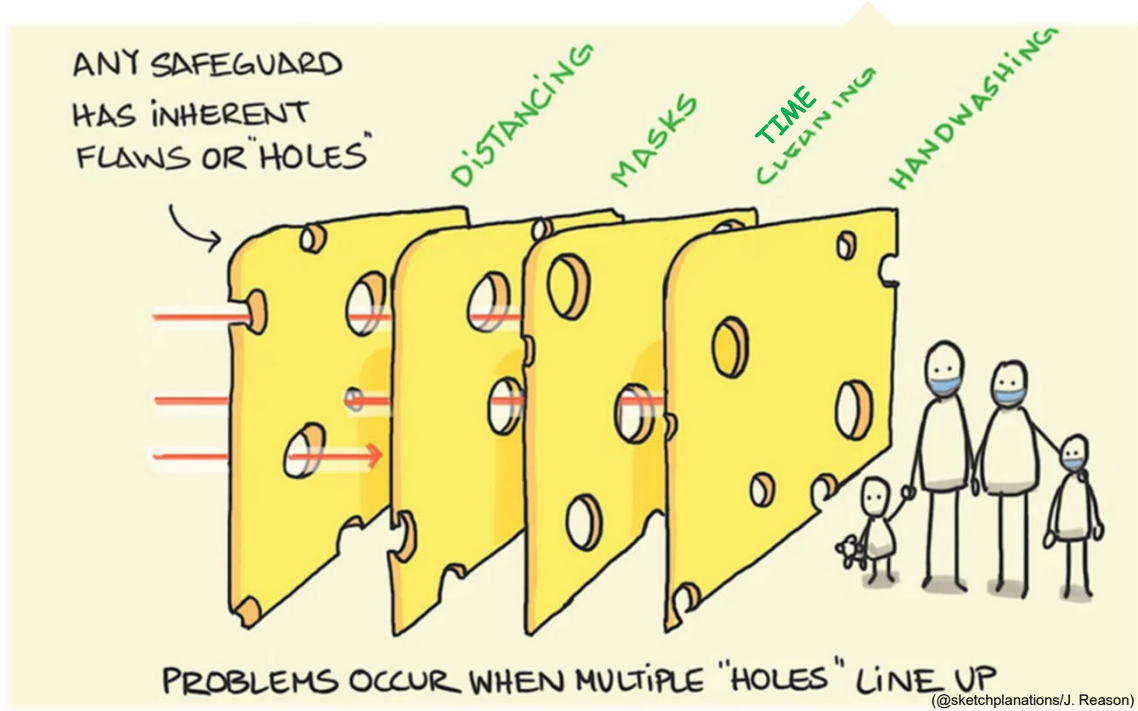 ANY SAFEGUARD
HAS INHERENT
FLAWS OR "HOLES"
DISTANCING
MASKS
TIME
CLEANING
HANDWASHING
PROBLEMS OCCUR WHEN MULTIPLE "HOLES" LINE UP
(@sketchplanations/J. Reason)